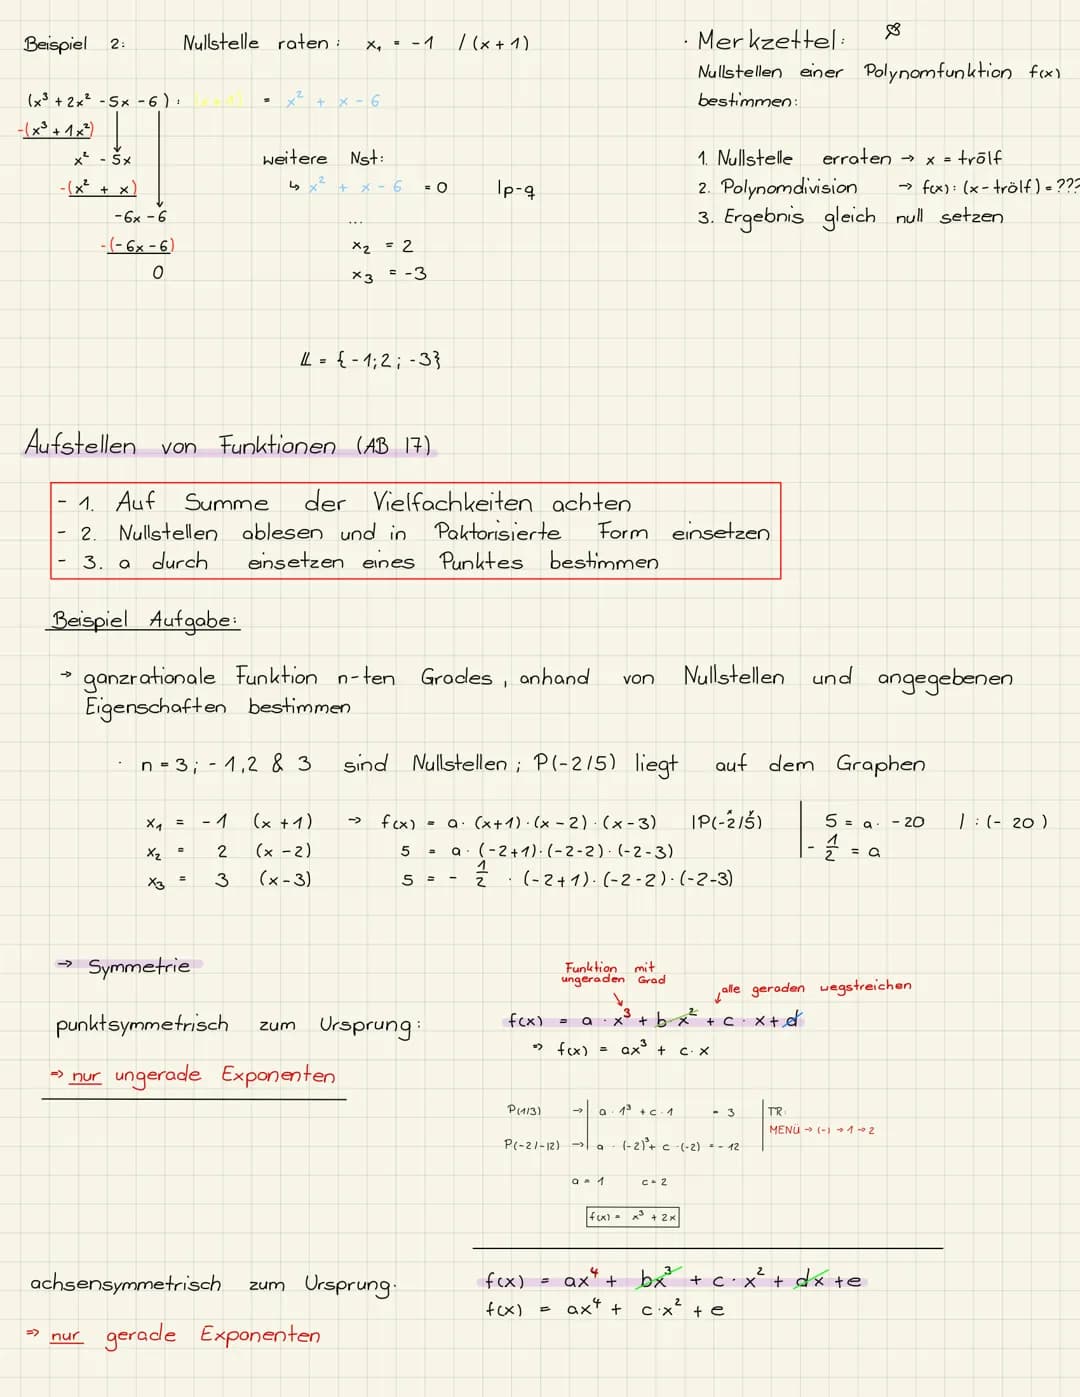 Beispiel 2: Nullstelle raten: x₁ = -1 / (x + 1)
(x³ + 2x² - 5x - 6) : (x + 1) = x² + x - 6
-(x³ + 1x²)
x² - 5x
-(x² + x)
-6x - 6
-(-6x - 6)
0
weitere Nst:
↳ x² + x - 6 = 0 |p-q
...
x₂ = 2
x₃ = -3
𝕃 = {-1; 2; -3}
· Merkzettel:
Nullstellen einer Polynomfunktion f(x)
bestimmen:
1. Nullstelle erraten → x = trölf
2. Polynomdivision → f(x) : (x - trölf) = ???
3. Ergebnis gleich null setzen
Aufstellen von Funktionen (AB 17)
- 1. Auf Summe der Vielfachkeiten achten
- 2. Nullstellen ablesen und in Paktorisierte Form einsetzen
- 3. a durch einsetzen eines Punktes bestimmen
Beispiel Aufgabe:
→ ganzrationale Funktion n-ten Grades, anhand von Nullstellen und angegebenen
Eigenschaften bestimmen
· n = 3; -1,2 & 3 sind Nullstellen; P(-2/5) liegt auf dem Graphen
x₁ = -1 (x + 1) → f(x) = a · (x+1) · (x-2) · (x-3) |P(-2/5)
x y
x₂ = 2 (x - 2) 5 = a · (-2+1) · (-2-2) · (-2-3)
x₃ = 3 (x - 3) 5 = - 1/2 · (-2+1) · (-2-2) · (-2-3)
5 = a · -20 / : (-20)
- 1/2 = a
→ Symmetrie
punktsymmetrisch zum Ursprung:
⇒ nur ungerade Exponenten
Funktion mit
ungeraden Grad
alle geraden wegstreichen
f(x) = a · x³ + bx² + c · x + d
⇒ f(x) = ax³ + c · x
P(1/3) → a · 1³ + c · 1 = 3
P(-2/-12) → a · (-2)³ + c · (-2) = -12
TR:
MENÜ → (-) → 1 → 2
a = 1 c = 2
f(x) = x³ + 2x
achsensymmetrisch zum Ursprung.
⇒ nur gerade Exponenten
f(x) = ax⁴ + bx³ + c · x² + dx + e
f(x) = ax⁴ + c · x² + e